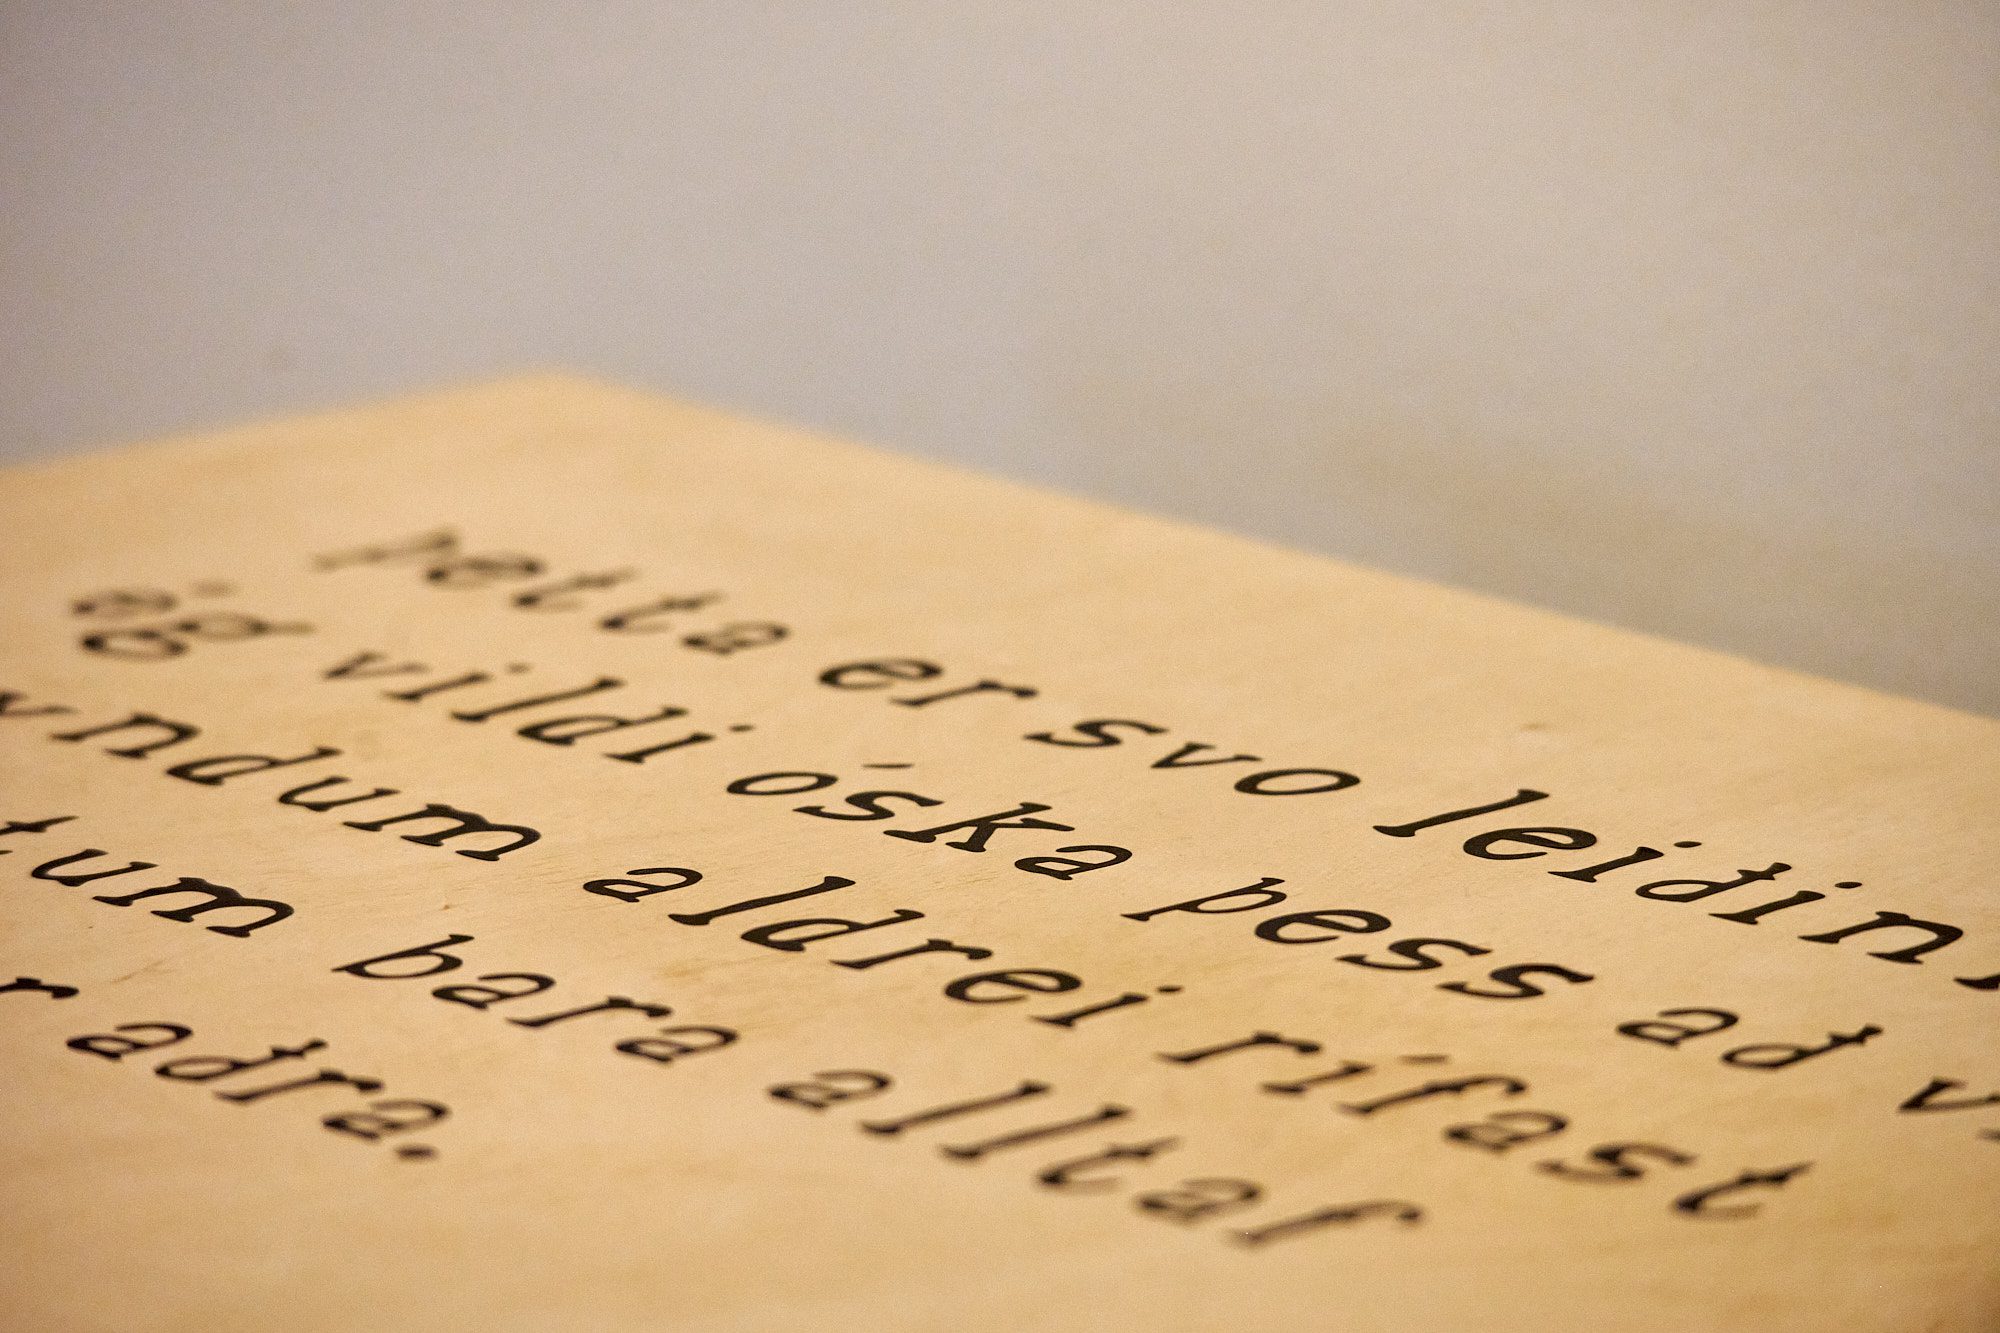 Þetta er svo leiðin
ég vildi óska þess að v
yndum aldrei rífast
tum bara alltaf
r aðra.